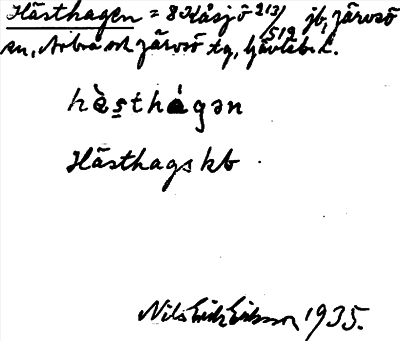 Hästhagen = 8 Kåsjö 2 13/512 jb, Järvsö
sn, Arbrå och Järvsö tg, Gävleb. l.
hàsthágən
Hästhags kb
Nils Erik Eriksson 1935.